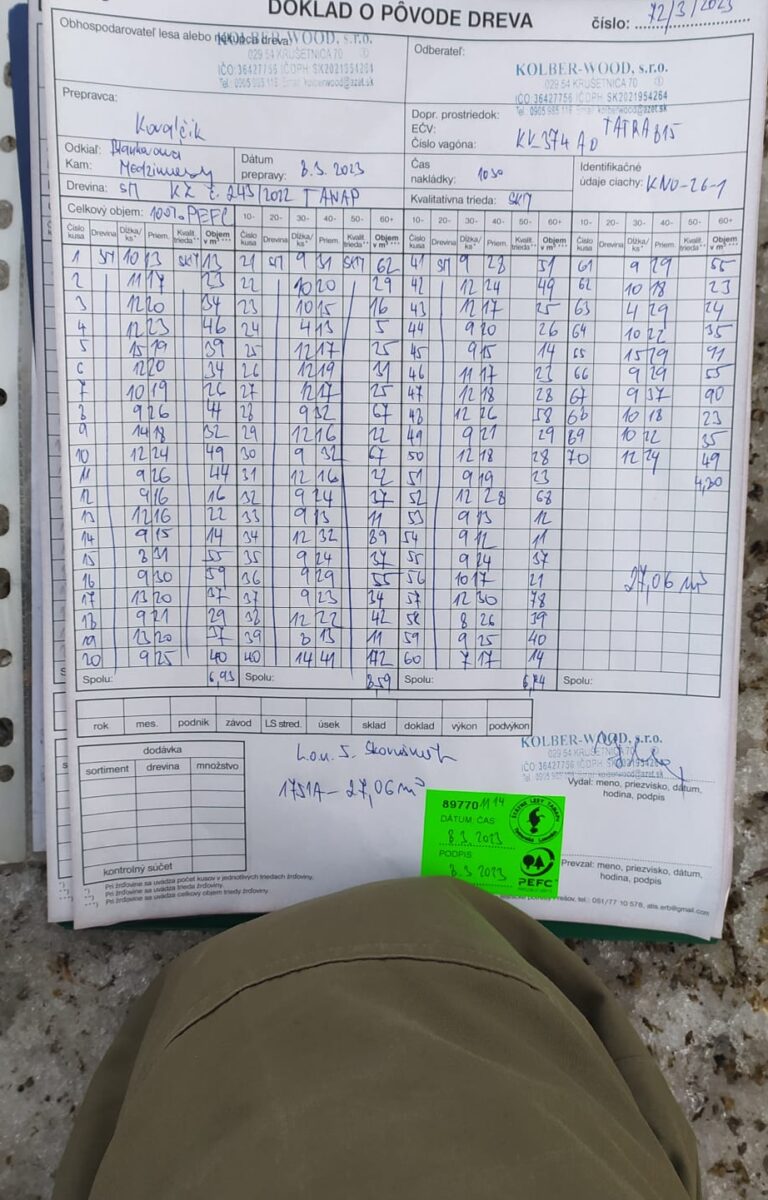 DOKLAD O PÔVODE DREVA
číslo: 72/3/2023
Obhospodarovateľ lesa alebo
KOLBER-WOOD, s.r.o.
029 54 KRUŠETNICA 70
IČO: 36427756 IČDPH: SK2021954264
Tel.: 0905 985 116 Email: kolberwood@azet.sk
Odberateľ:
KOLBER-WOOD, s.r.o.
029 54 KRUŠETNICA 70
IČO: 36427756 IČDPH: SK2021954264
Prepravca:
Kovalčik
Dopr. prostriedok: TATRA 815
EČV:
Číslo vagóna: KK 374 AD
Odkiaľ:
Kam:
Dátum prepravy: 8.3.2023
Čas nakládky: 10 30
Identifikačné údaje ciachy: KNO-26-1
Drevina: SM KZ č. 243/2022 TANAP
Kvalitatívna trieda: SKM
Celkový objem: 100% PEFC 10- 20- 30- 40- 50- 60+ 10- 20- 30- 40- 50- 60+ 10- 20- 30- 40- 50- 60+
Číslo kusa Drevina Dĺžka/ks* Priem. Kvalit. trieda** Objem v m³*** Číslo kusa Drevina Dĺžka/ks* Priem. Kvalit. trieda** Objem v m³*** Číslo kusa Drevina Dĺžka/ks* Priem. Kvalit. trieda** Objem v m³*** Číslo kusa Drevina Dĺžka/ks* Priem. Kvalit. trieda** Objem v m³***
1 SM 10 13 SKM 13 21 SM 9 31 SKM 62 41 SM 9 28 51 61 9 29 55
2 11 17 23 22 10 20 29 42 12 24 49 62 10 18 23
3 12 20 34 23 10 15 16 43 12 17 25 63 4 29 24
4 12 23 46 24 4 13 5 44 9 20 26 64 10 22 35
5 15 19 39 25 12 17 25 45 9 15 14 65 15 29 91
6 12 20 34 26 12 19 31 46 11 17 23 66 9 29 55
7 10 19 26 27 12 17 25 47 12 18 28 67 9 37 90
8 9 26 44 28 9 32 67 48 12 26 58 68 10 18 23
9 14 18 32 29 12 16 22 49 9 21 29 69 10 22 35
10 12 24 49 30 9 32 67 50 12 18 28 70 12 24 49
11 9 26 44 31 12 16 22 51 9 19 23 4,80
12 9 16 16 32 9 24 37 52 12 28 68
13 12 16 22 33 9 13 11 53 9 13 12
14 9 15 14 34 12 32 89 54 9 12 11
15 8 31 55 35 9 24 37 55 9 24 37
16 9 30 59 36 9 29 55 56 10 17 21 27,06 m³
17 13 20 37 37 9 23 34 57 12 30 78
18 9 21 29 38 12 22 42 58 8 26 39
19 13 20 37 39 8 13 11 59 9 25 40
20 9 25 40 40 14 41 172 60 7 17 14
Spolu: 6,93 Spolu: 8,59 Spolu: 6,74 Spolu:
rok mes. podnik závod LS stred. úsek sklad doklad výkon podvýkon
dodávka
sortiment drevina množstvo
kontrolný súčet
1751A - 27,06 m³
KOLBER-WOOD, s.r.o.
029 54 KRUŠETNICA 70
IČO: 36427756 IČDPH: SK2021954264
Vydal: meno, priezvisko, dátum,
hodina, podpis
89770 11 14
DÁTUM, ČAS
8.3.2023
PODPIS
8.3 2023
ŠTÁTNE LESY TANAPU
PEFC
Prevzal: meno, priezvisko, dátum,
hodina, podpis
*) Pri žrďovine sa uvádza počet kusov v jednotlivých triedach žrďoviny.
**) Pri žrďovine sa uvádza trieda žrďoviny.
***) Pri žrďovine sa uvádza celkový objem triedy žrďoviny.
Prešov, tel.: 051/77 10 578, atis.erb@gmail.com